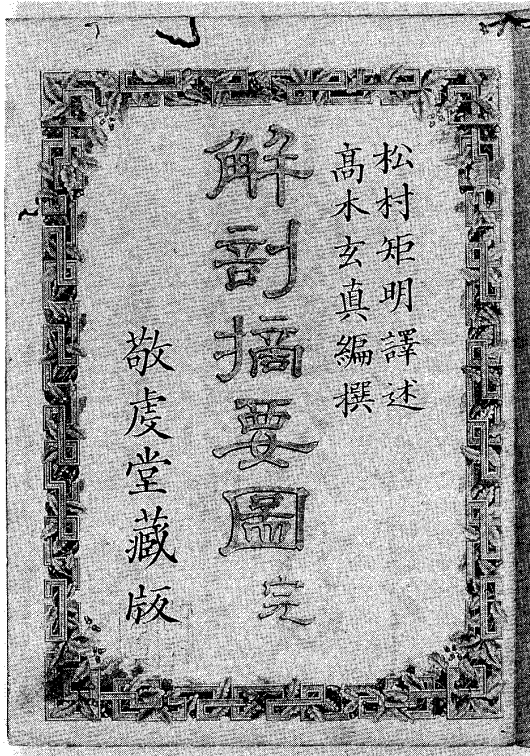 松村矩明譯述
髙木玄真編撰
解剖摘要圖
完
敬虔堂藏版